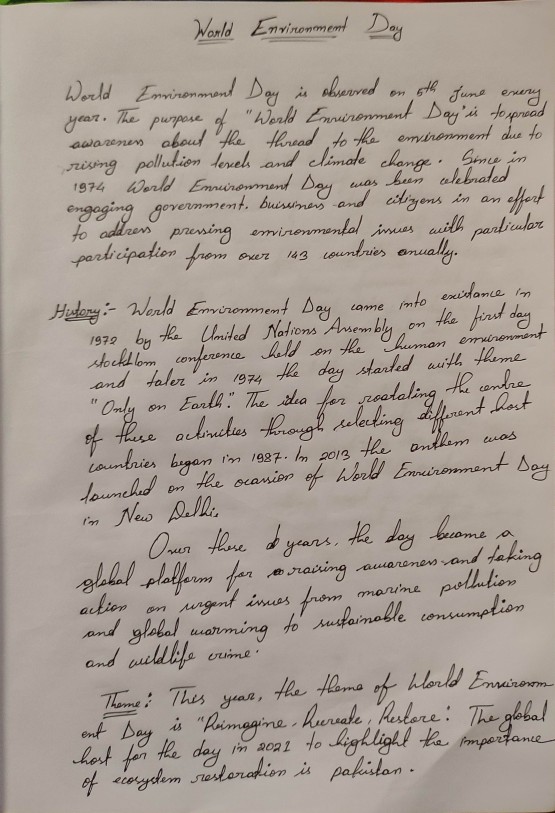 World Environment Day
World Environment Day is observed on 5th June every
year. The purpose of "World Environment Day" is to spread
awareness about the thread to the environment due to
rising pollution levels and climate change. Since in
1974 World Environment Day was been celebrated
engaging government, buissness and citizens in an effort
to address pressing environmental issues with particular
participation from over 143 countries anually.
History:- World Environment Day came into existance in
1972 by the United Nations Assembly on the first day
stockhlom conference held on the human environment
and later in 1974 the day started with theme
"Only on Earth". The idea for roatating the centre
of these activities through selecting different host
countries began in 1987. In 2013 the anthem was
launched on the ocassion of World Environment Day
in New Delhi.
Over these years, the day became a
global platform for raising awareness and taking
action on urgent issues from marine pollution
and global warming to sustainable consumption
and wildlife crime.
Theme: This year, the theme of World Environm
ent Day is "Reimagine, Recreate, Restore". The global
host for the day in 2021 to highlight the importance
of ecosystem restoration is pakistan.